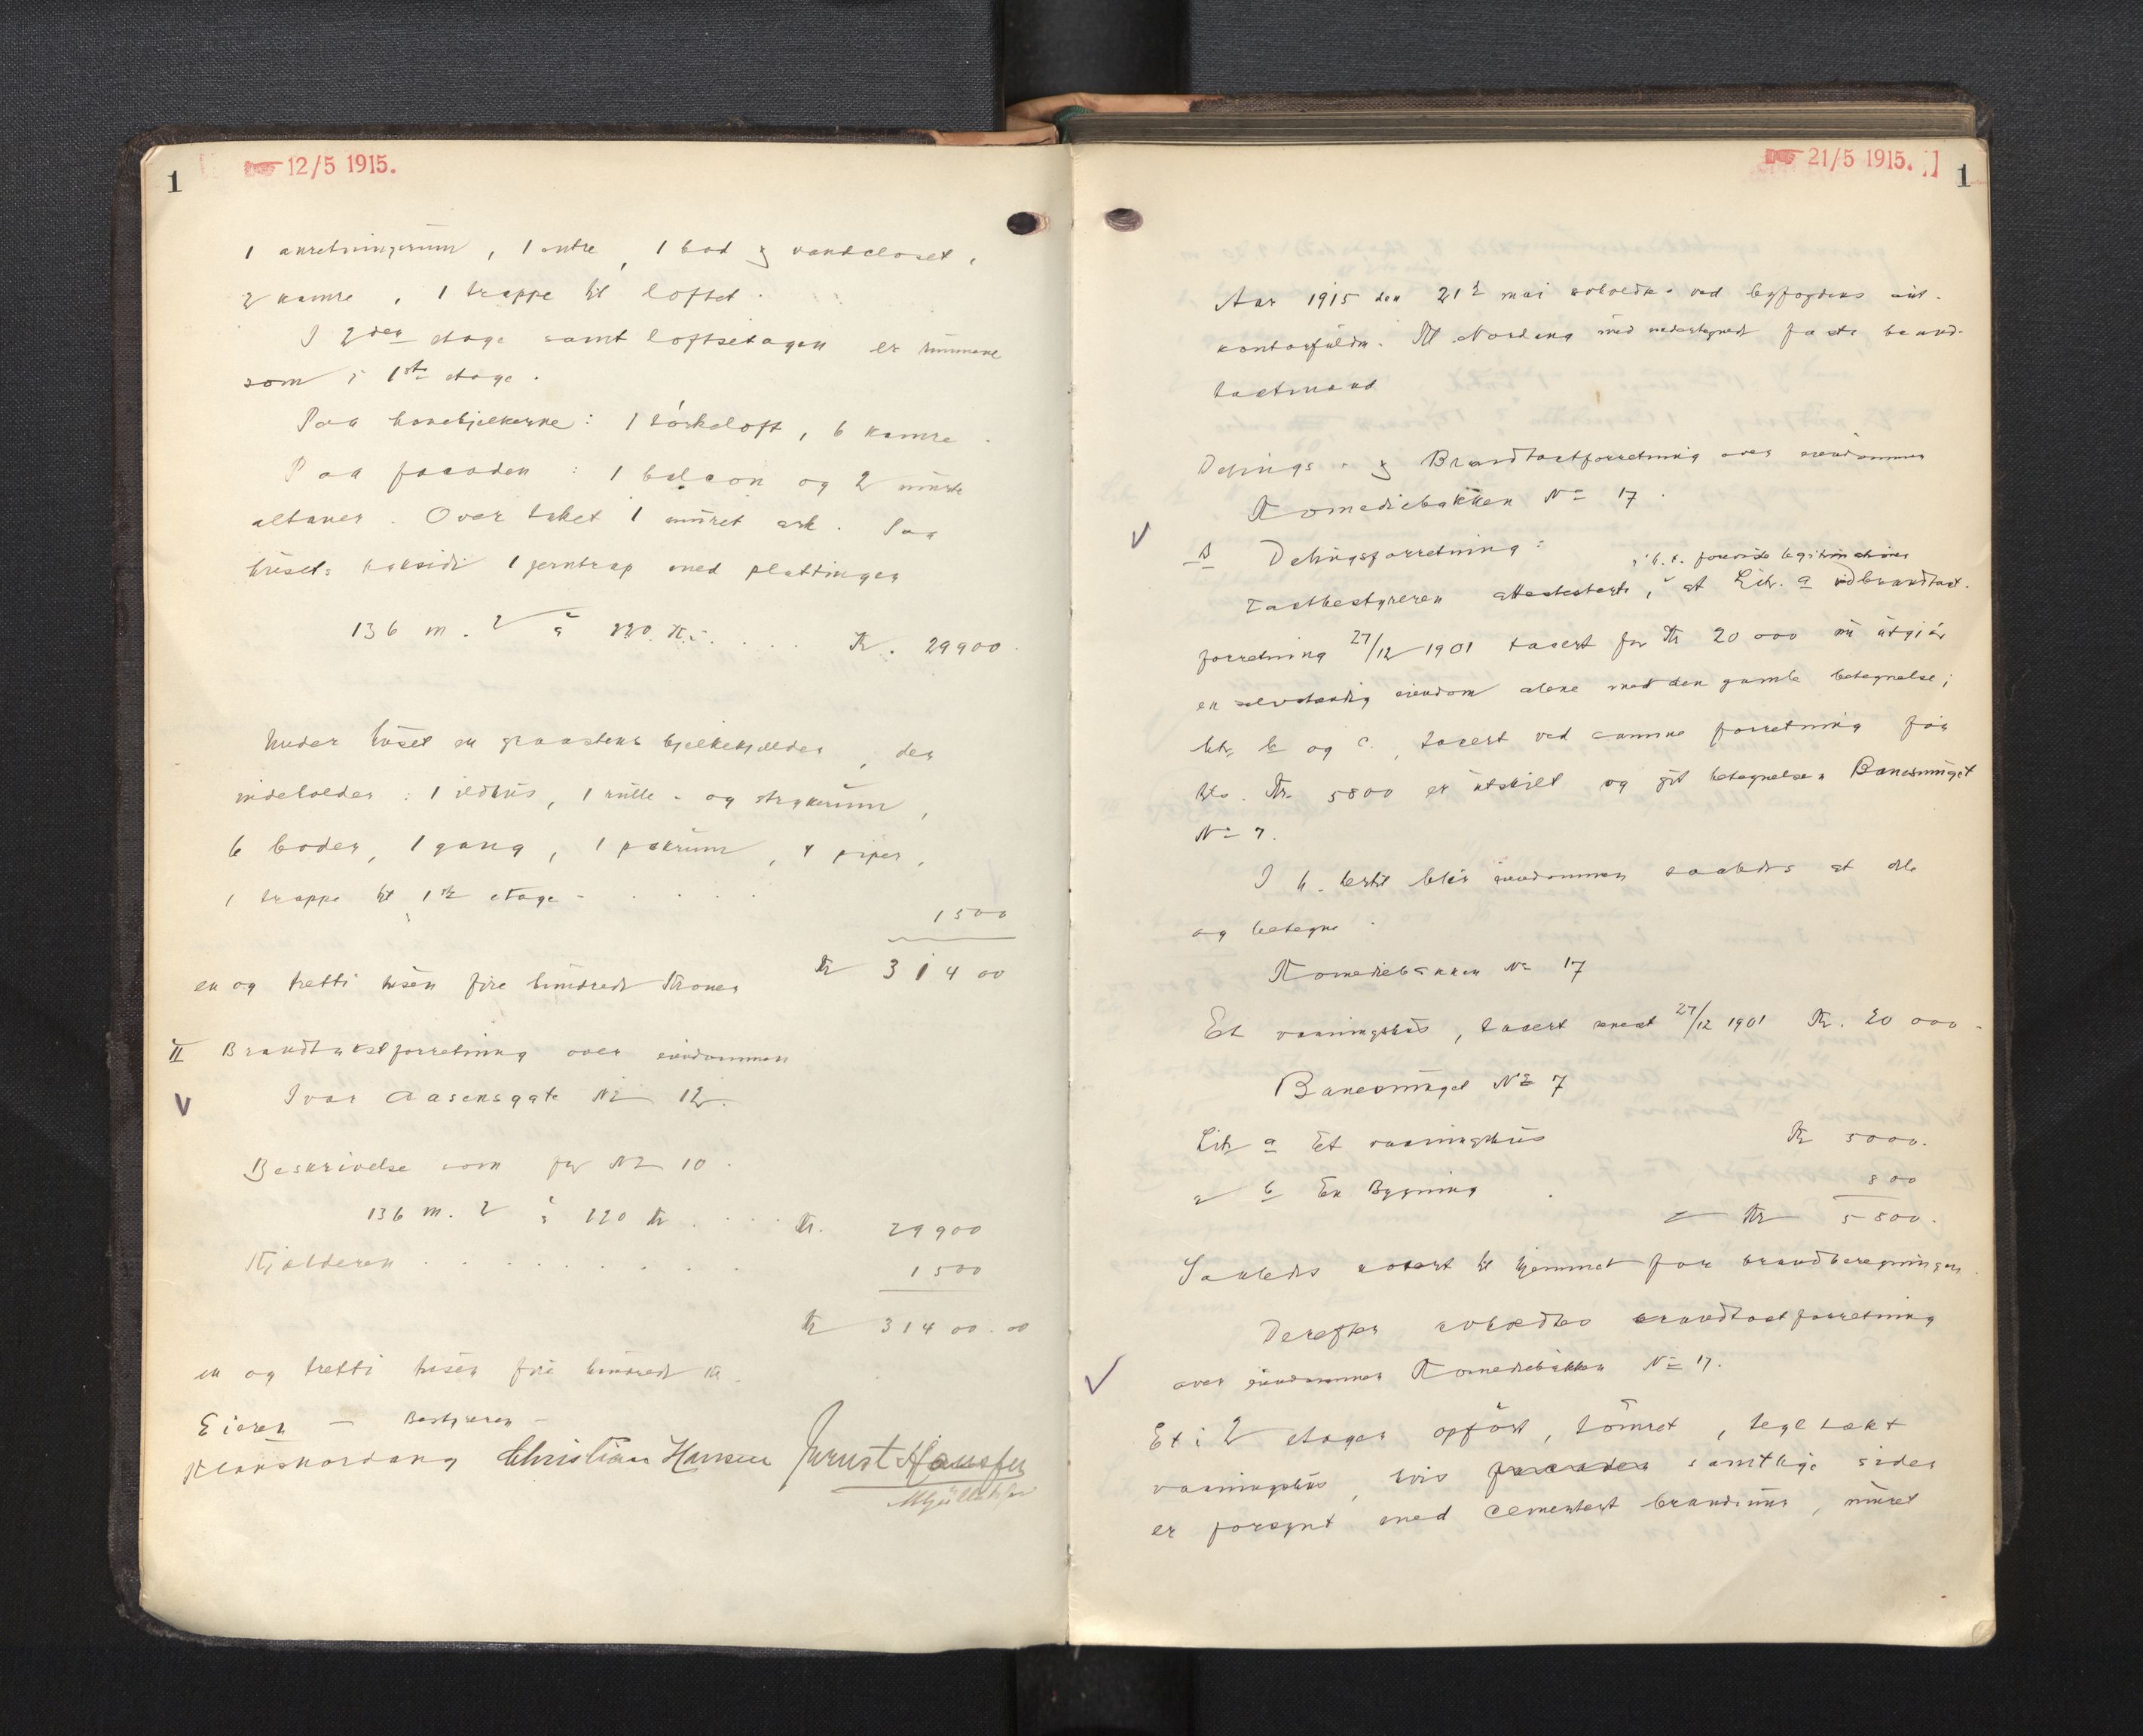 1
12/5 1915.
1 anretningsrum, 1 entre, 1 bod og vandcloset,
2 kamre, 1 trappe til loftet.
I 2den etage samt loftsetagen er rummene
som i 1ste etage.
Paa hanebjelkerne: 1 törkeloft, 6 kamre.
Paa facaden: 1 balcon og 2 murte
altaner. Over taket 1 muret ark. Paa
husets bakside 1 jerntrap med plattinger
136 m. 2 à 220 Kr. . . . . Kr. 29900.
Under huset er graastens bjelkekjelder, der
indeholder: 1 ildhus, 1 rulle- og strykerum,
6 boder, 1 gang, 1 pakrum, 4 piper,
1 trappe til 1ste etage - . . . . 1500
en og tretti tusen fire hundrede Kroner Kr 31400
II Brandtakstforretning over eiendommen
V Ivar Aasensgate No 12.
Beskrivelse som for No 10.
136 m. 2 à 220 Kr . . . . Kr. 29900
Kjælderen . . . . . . . . 1500
Kr 31400.00
en og tretti tusen fire hundrede Kr.
Eieren — Bestyreren —
Klaus Nordang Christian Hansen
21/5 1915.
1
Aar 1915 den 21de mai avholdtes ved byfogdens aut.
kontorfuldm. Kl Nordang med undertegnede faste brand-
taxtmænd
Delings- og Brandtaxtforretning over eiendommen
Komediebakken No 17.
V
Delingsforretning:
i h. t. foreviste legitimationer
Taxtbestyreren attesterte, at Litr. a ved brandtaxt-
forretning 27/12 1901 taxert for Kr 20 000 nu utgjör
en selvstændig eiendom alene med den gamle betegnelse;
litr. b og c., taxert ved samme forretning for
tils. Kr. 5800 er utskilt og git betegnelsen Banesmuget
No 7.
I h. hertil blir eiendommen saaledes at dele
og betegne.
Komediebakken No 17
Et vaaningshus, taxert senest 27/12 1901 Kr. 20 000.
Banesmuget No 7
Litr a Et vaaningshus Kr 5000.
" b En Bygning . 800
Kr 5800.
Saaledes notert til hjemmet for brandberegningen.
Derefter avholdtes brandtaxtforretning
V over eiendommen Komediebakken No 17.
Et i 2 etager opfört, tömret, tegltækt
vaaningshus, hvis facader samtlige sider
er forsynt med cementert brandmur, muret